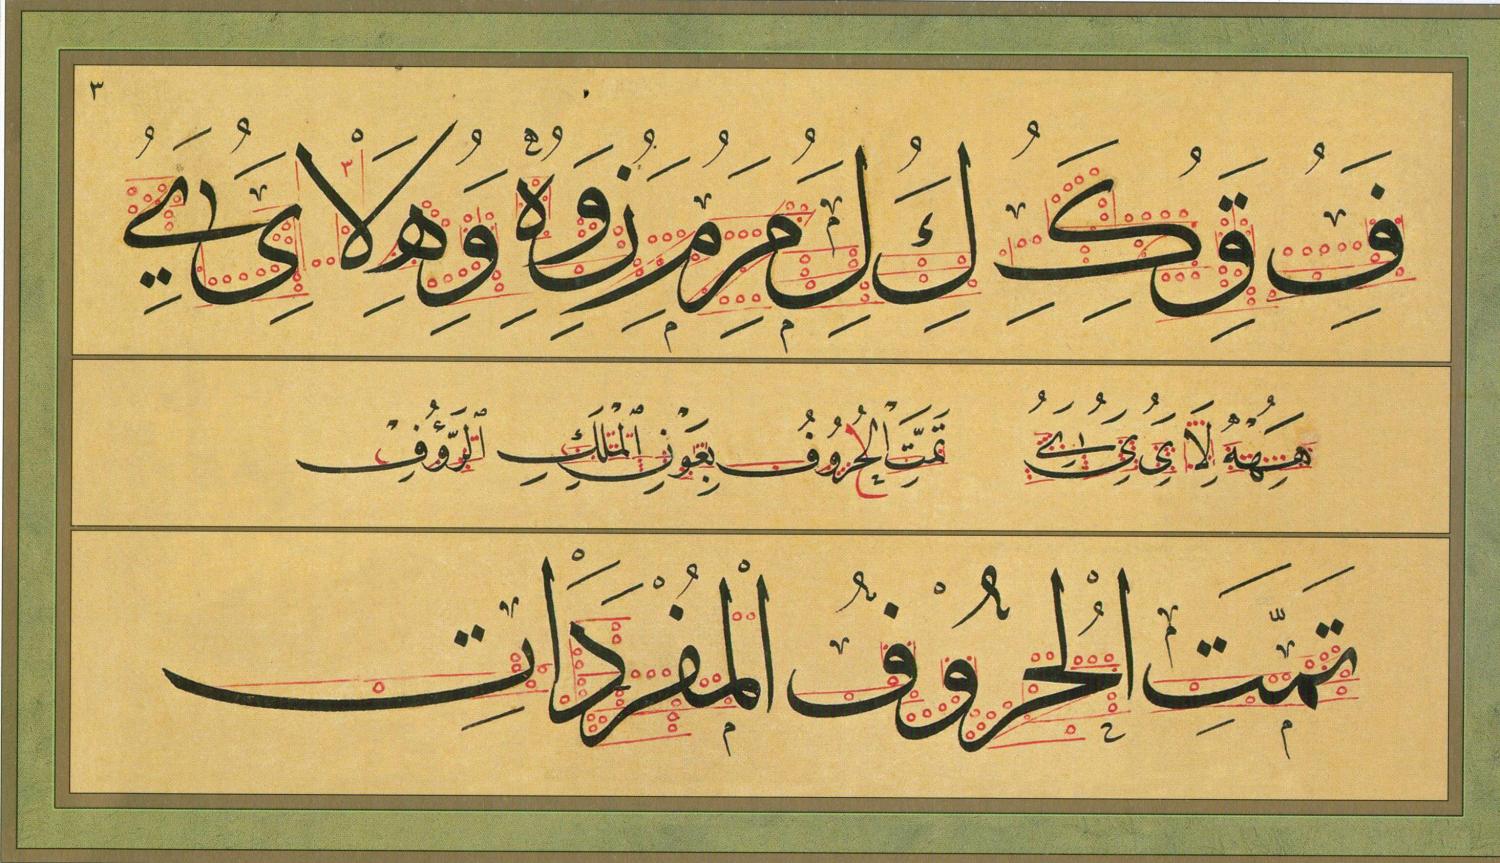 ٣
ف ق ك ك ل ل م م ن و ه و ه لا ى ي
ههه لا ى ى ي تمت الحروف بعون الملك الرؤف
تمت الحروف المفردات